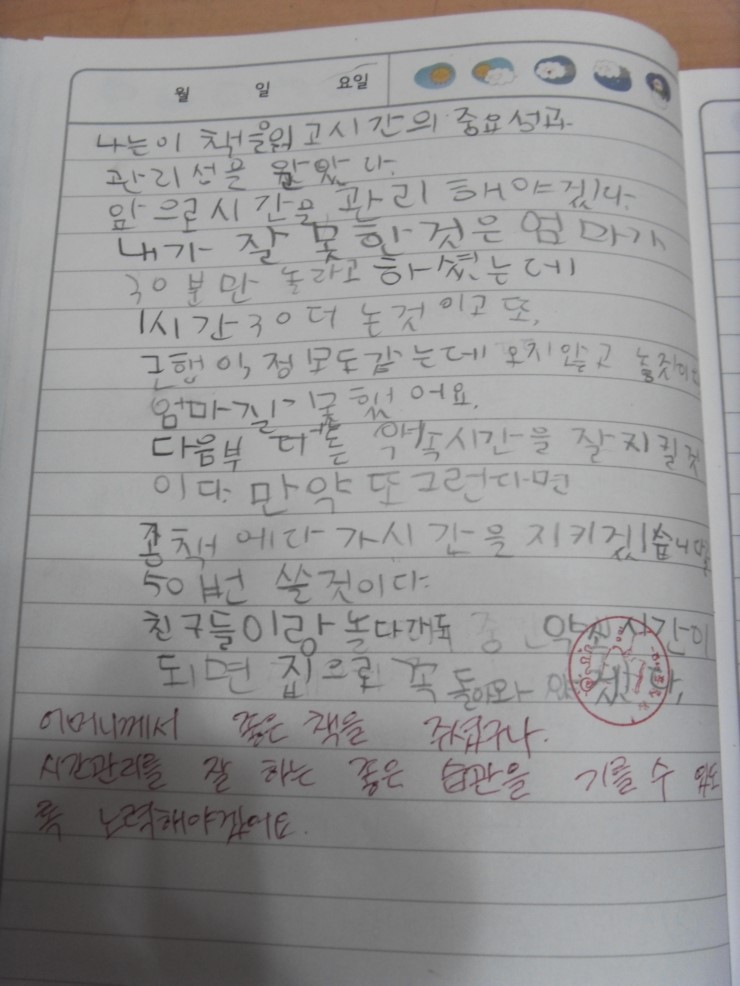 월 일 요일
나는이 책을읽고시간의 중요성과
관리선을 알았다.
앞으로시간을 관리해야겠다.
내가 잘 못한것은 엄마가
30분만 놀라고 하셨는데
1시간30더 논것이고 또,
은행 익정보도같는데 오지않고 놀것이다
엄마질 했어요.
다음부터는 약속시간을 잘지킬것
이다. 만약 또그런다면
공책에다가시간을지키겠습니다
50번 쓸것이다.
친구들이랑 놀다가도 약속시간이
되면 집으로 꼭 돌아와야겠다.
어머니께서 좋은 책을 주셨구나.
시간관리를 잘 하는 좋은 습관을 기를 수 있도
록 노력해야겠어요.